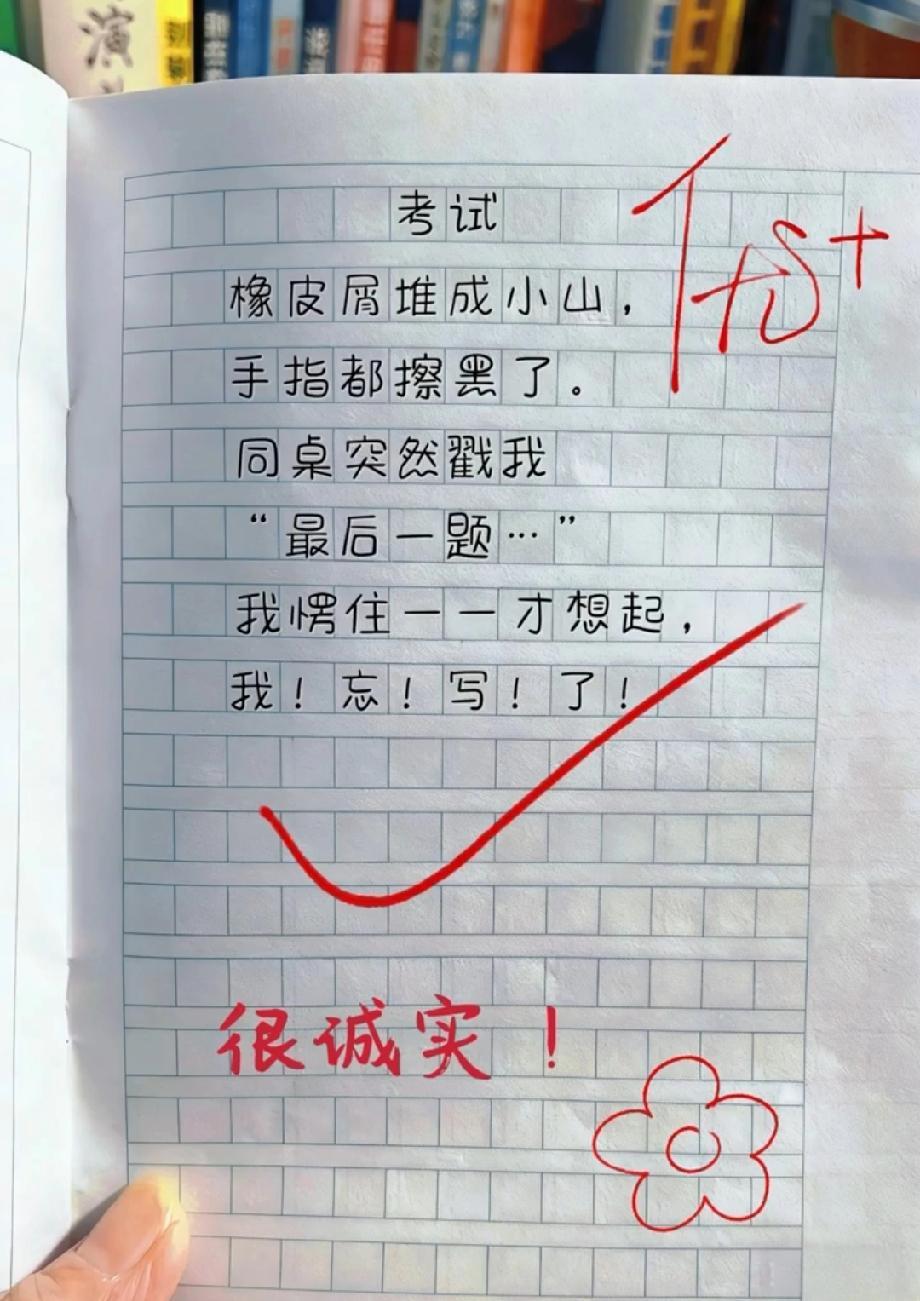 演
考试
优+
橡皮屑堆成小山，
手指都擦黑了。
同桌突然戳我
“最后一题…”
我愣住——才想起，
我！忘！写！了！
很诚实！